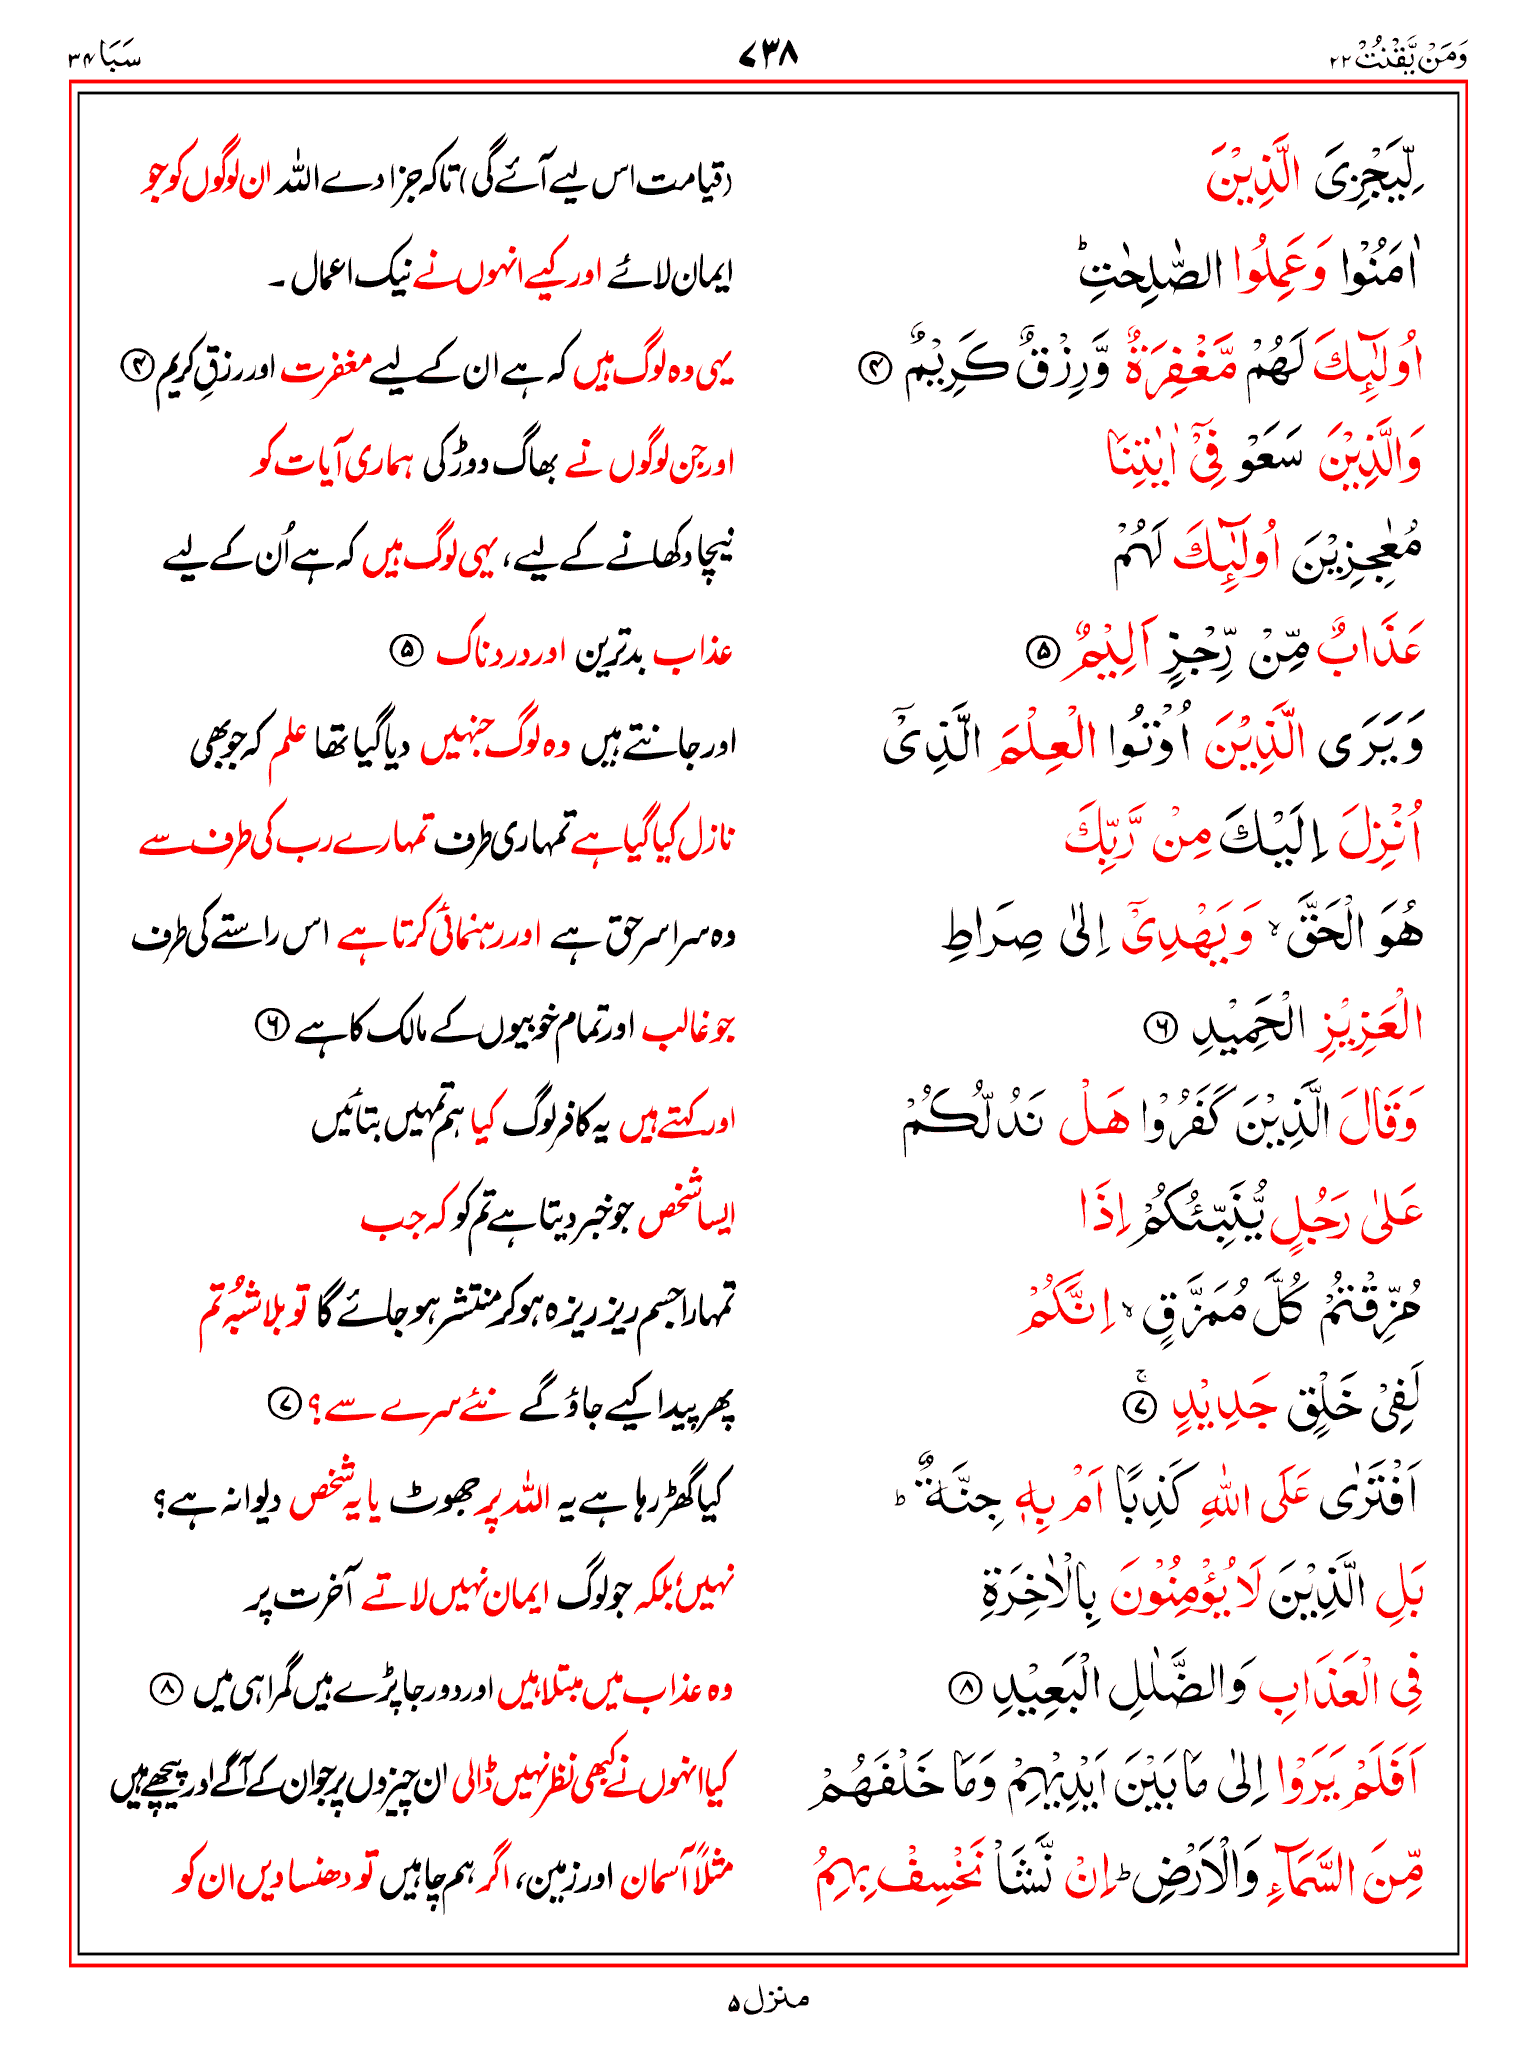 وَمَنْ يَّقْنُتْ ۲۲ ۷۳۸ سَبَا ۳۴
لِّيَجْزِىَ الَّذِيْنَ (قیامت اس لیے آئے گی) تاکہ جزا دے اللہ ان لوگوں کو جو
اٰمَنُوْا وَعَمِلُوا الصّٰلِحٰتِؕ ایمان لائے اور کیے انہوں نے نیک اعمال ۔
اُولٰٓٮِٕكَ لَهُمْ مَّغْفِرَةٌ وَّرِزْقٌ كَرِيْمٌ ۴ یہی وہ لوگ ہیں کہ ہے ان کے لیے مغفرت اور رزقِ کریم ۴
وَالَّذِيْنَ سَعَوْ فِىْۤ اٰيٰتِنَا اور جن لوگوں نے بھاگ دوڑ کی ہماری آیات کو
مُعٰجِزِيْنَ اُولٰٓٮِٕكَ لَهُمْ نیچا دکھانے کے لیے، یہی لوگ ہیں کہ ہے اُن کے لیے
عَذَابٌ مِّنْ رِّجْزٍ اَلِيْمٌ ۵ عذاب بدترین اور دردناک ۵
وَيَرَى الَّذِيْنَ اُوْتُوا الْعِلْمَ الَّذِىْۤ اور جانتے ہیں وہ لوگ جنہیں دیا گیا تھا علم کہ جو بھی
اُنْزِلَ اِلَيْكَ مِنْ رَّبِّكَ نازل کیا گیا ہے تمہاری طرف تمہارے رب کی طرف سے
هُوَ الْحَقَّ ۙ وَيَهْدِىْۤ اِلٰى صِرَاطِ وہ سراسر حق ہے اور رہنمائی کرتا ہے اس راستے کی طرف
الْعَزِيْزِ الْحَمِيْدِ ۶ جو غالب اور تمام خوبیوں کے مالک کا ہے ۶
وَقَالَ الَّذِيْنَ كَفَرُوْا هَلْ نَدُلُّكُمْ اور کہتے ہیں یہ کافر لوگ کیا ہم تمہیں بتائیں
عَلٰى رَجُلٍ يُّنَبِّئُكُمْ اِذَا ایسا شخص جو خبر دیتا ہے تم کو کہ جب
مُزِّقْتُمْ كُلَّ مُمَزَّقٍ ۙ اِنَّكُمْ تمہارا جسم ریزہ ریزہ ہو کر منتشر ہو جائے گا تو بلا شبُہ تم
لَفِىْ خَلْقٍ جَدِيْدٍ ۷ۚ پھر پیدا کیے جاؤ گے نئے سرے سے؟ ۷
اَفْتَرٰى عَلَى اللّٰهِ كَذِبًا اَمْ بِهٖ جِنَّةٌ ؕ کیا گھڑ رہا ہے یہ اللہ پر جھوٹ یا یہ شخص دیوانہ ہے؟
بَلِ الَّذِيْنَ لَا يُؤْمِنُوْنَ بِالْاٰخِرَةِ نہیں؛ بلکہ جو لوگ ایمان نہیں لاتے آخرت پر
فِى الْعَذَابِ وَالضَّلٰلِ الْبَعِيْدِ ۸ وہ عذاب میں مبتلا ہیں اور دور جا پڑے ہیں گمراہی میں ۸
اَفَلَمْ يَرَوْا اِلٰى مَا بَيْنَ اَيْدِيْهِمْ وَمَا خَلْفَهُمْ کیا انہوں نے کبھی نظر نہیں ڈالی ان چیزوں پر جو ان کے آگے اور پیچھے ہیں
مِّنَ السَّمَآءِ وَالْاَرْضِ ؕ اِنْ نَّشَاْ نَخْسِفْ بِهِمُ مثلاً آسمان اور زمین، اگر ہم چاہیں تو دھنسا دیں ان کو
منزل ۵